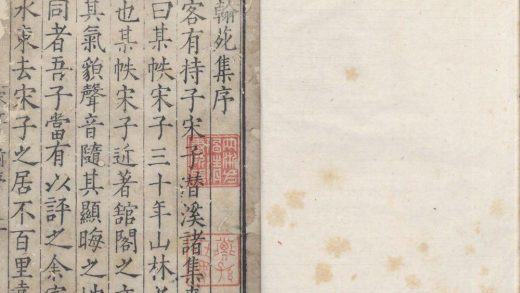 翰苑集序
客有持子宋子潛溪諸集
曰某帙宋子三十年山林
也某帙宋子近著舘閣之
其氣貌聲音隨其顯晦之
同者吾子當有以評之余
水東去宋子之居不百里